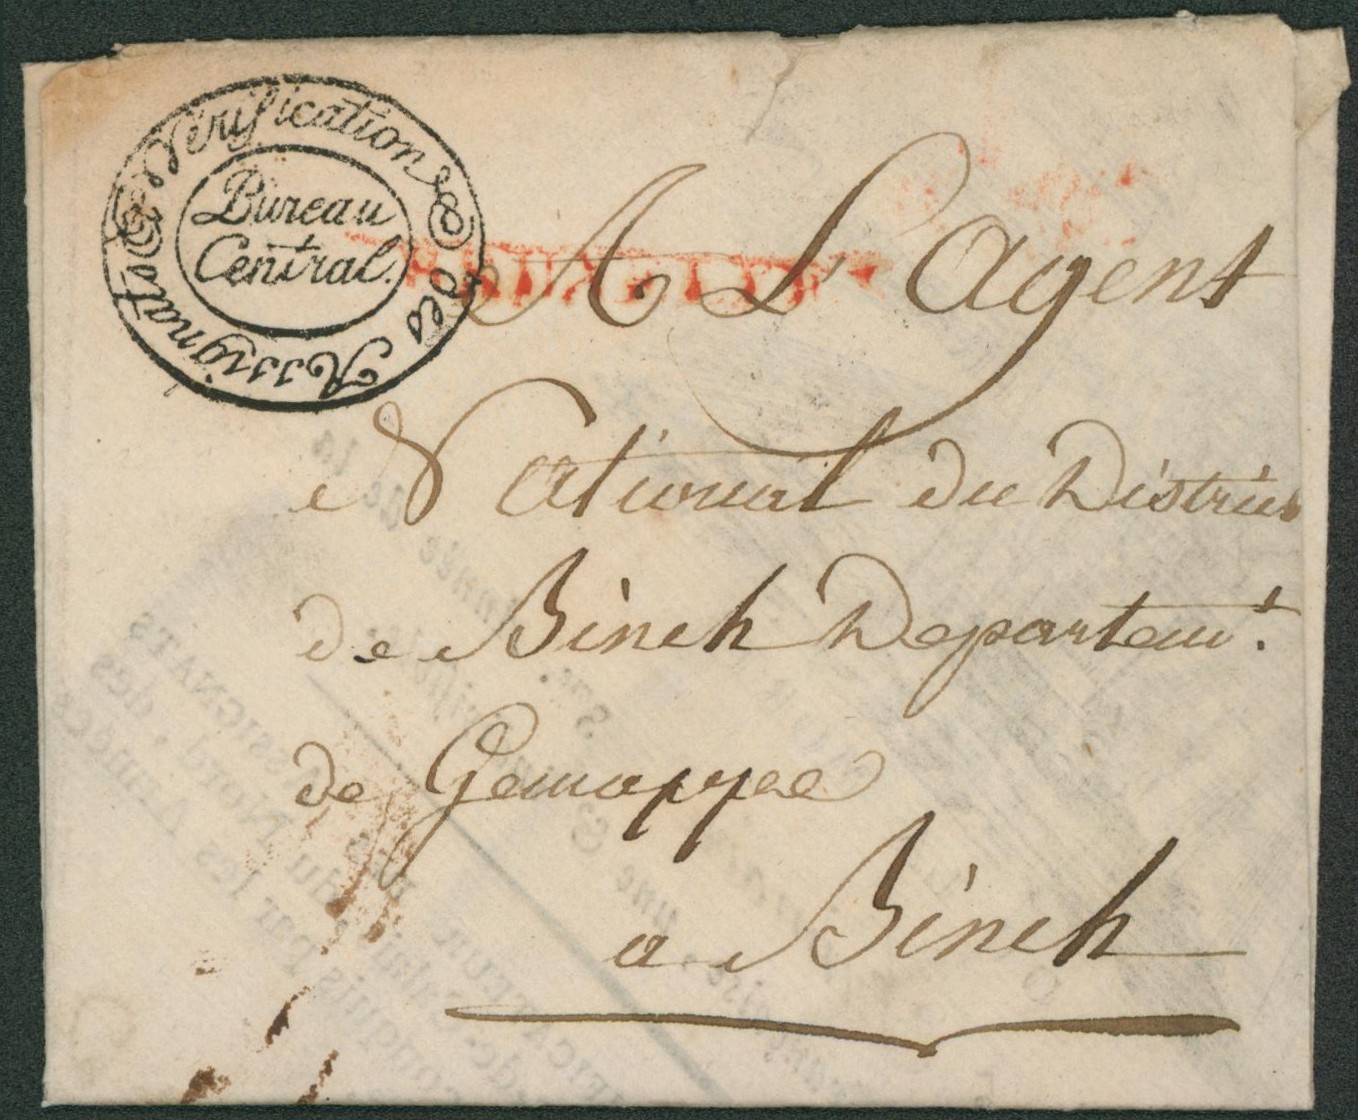 Vérification des Assignats
Bureau
Central.
BRUXELLES
A L'Agent
National du District
de Binch Departem.t
de Gemappe
a Binch